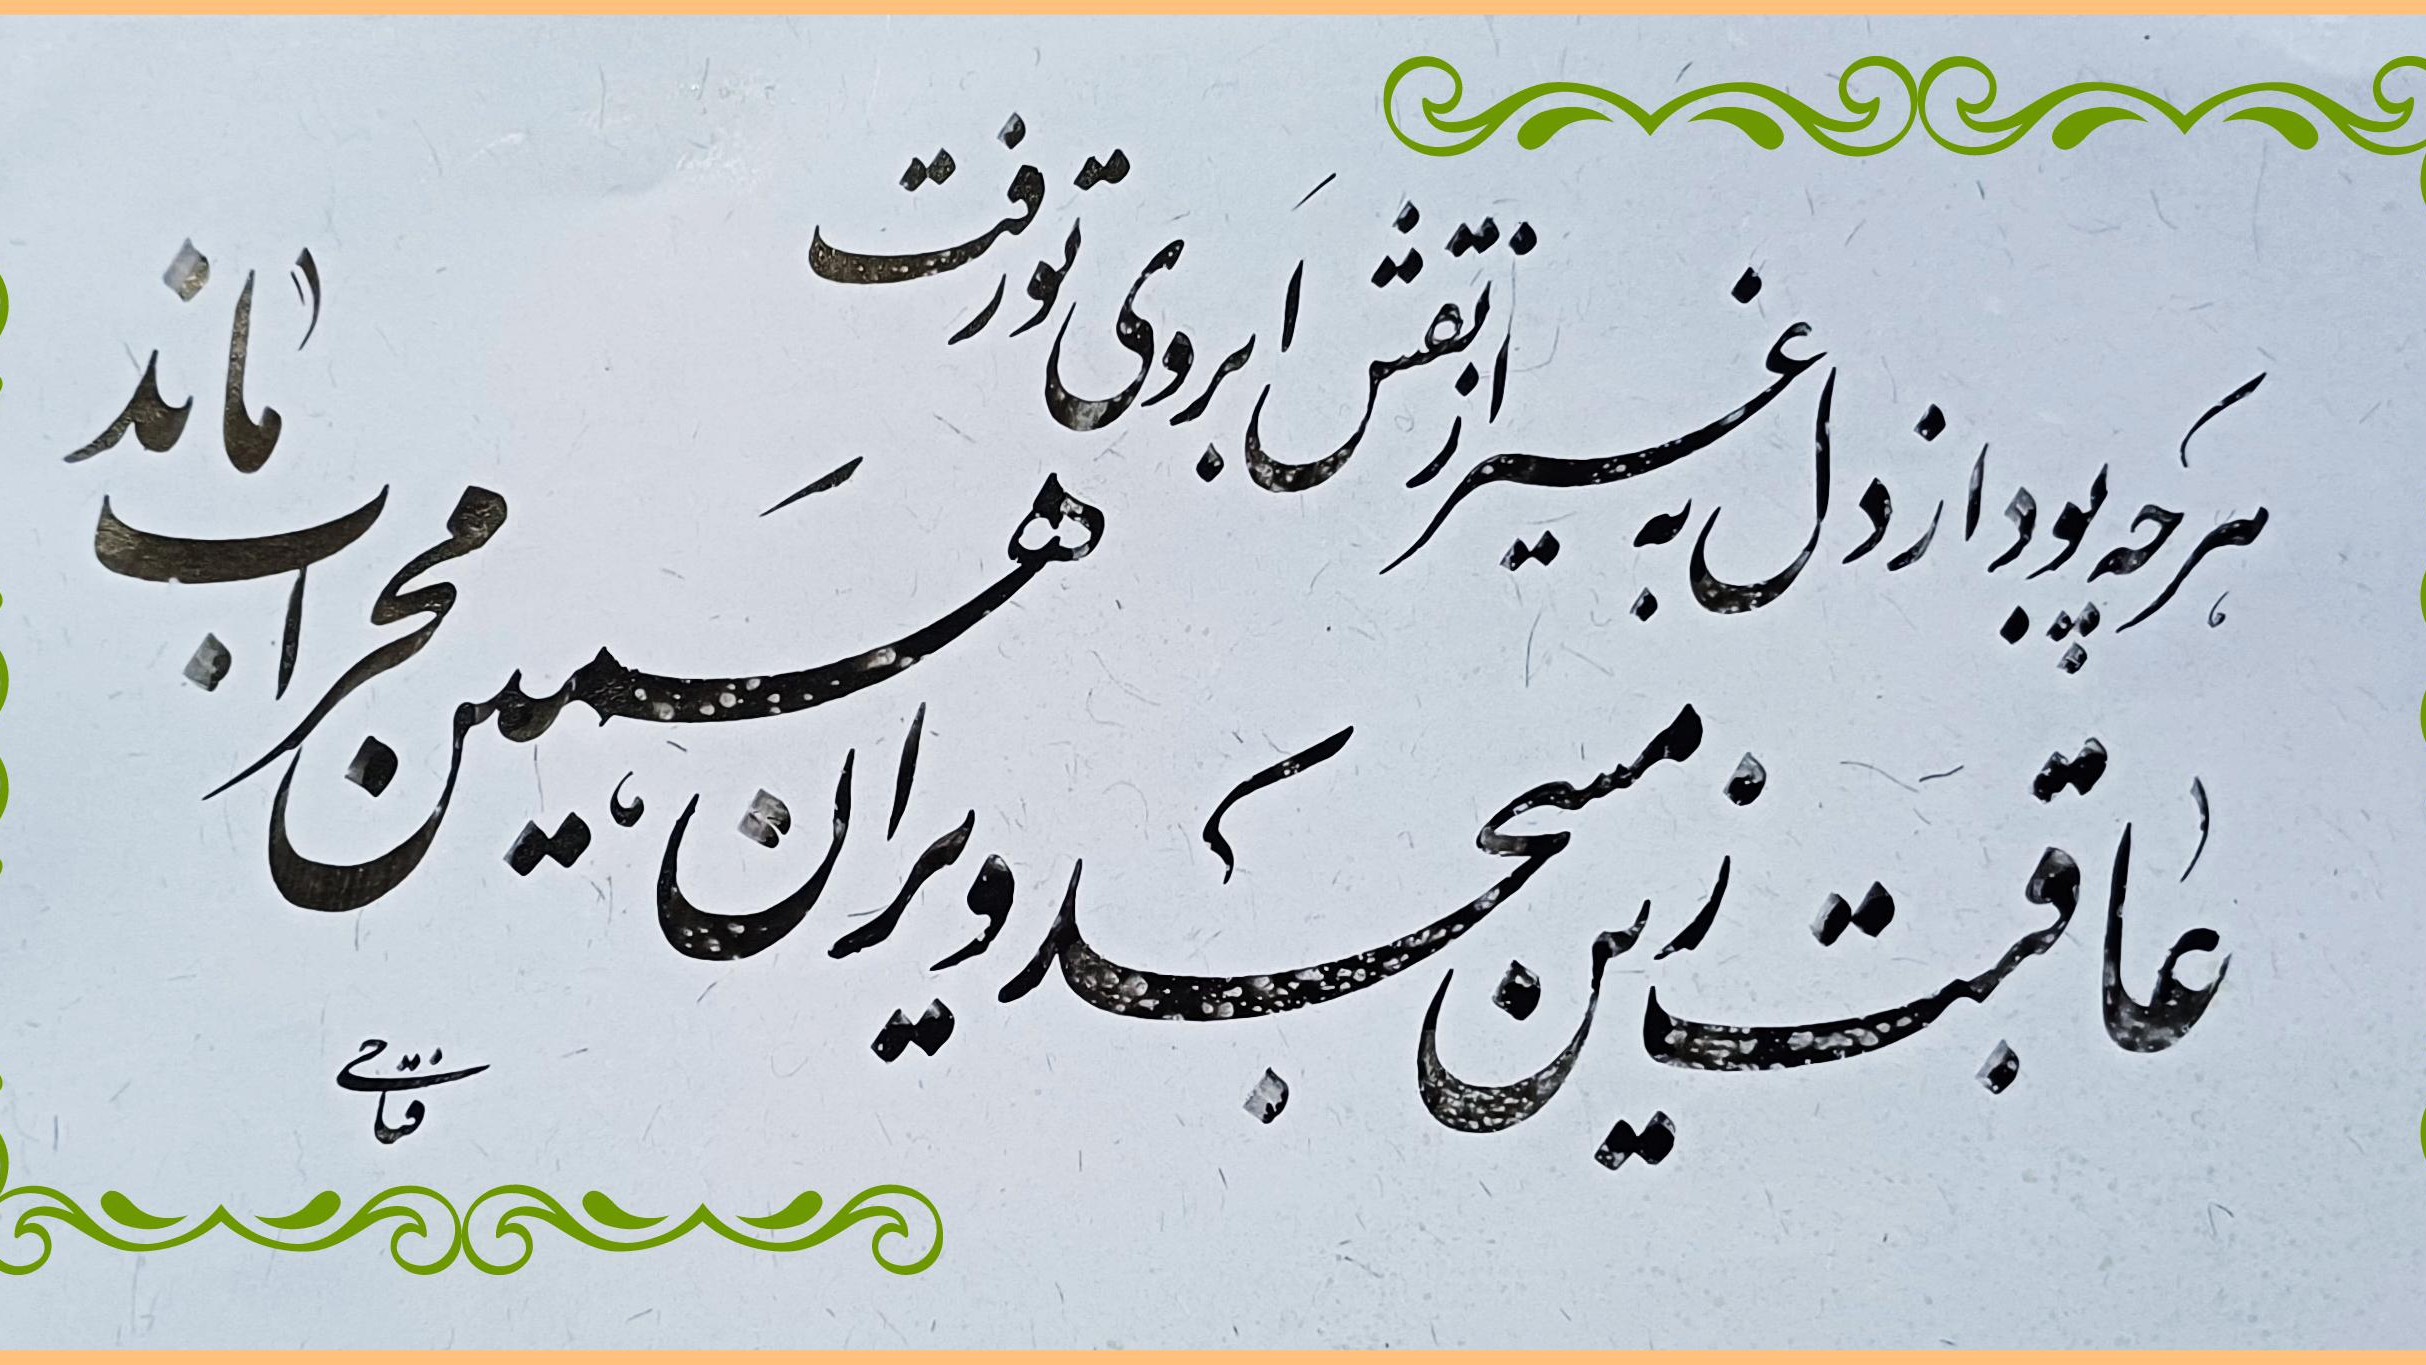 هر چه بود از دل به غیر از نقش ابروی تو رفت
عاقبت زین مسجد ویران همین محراب ماند
فتاحی